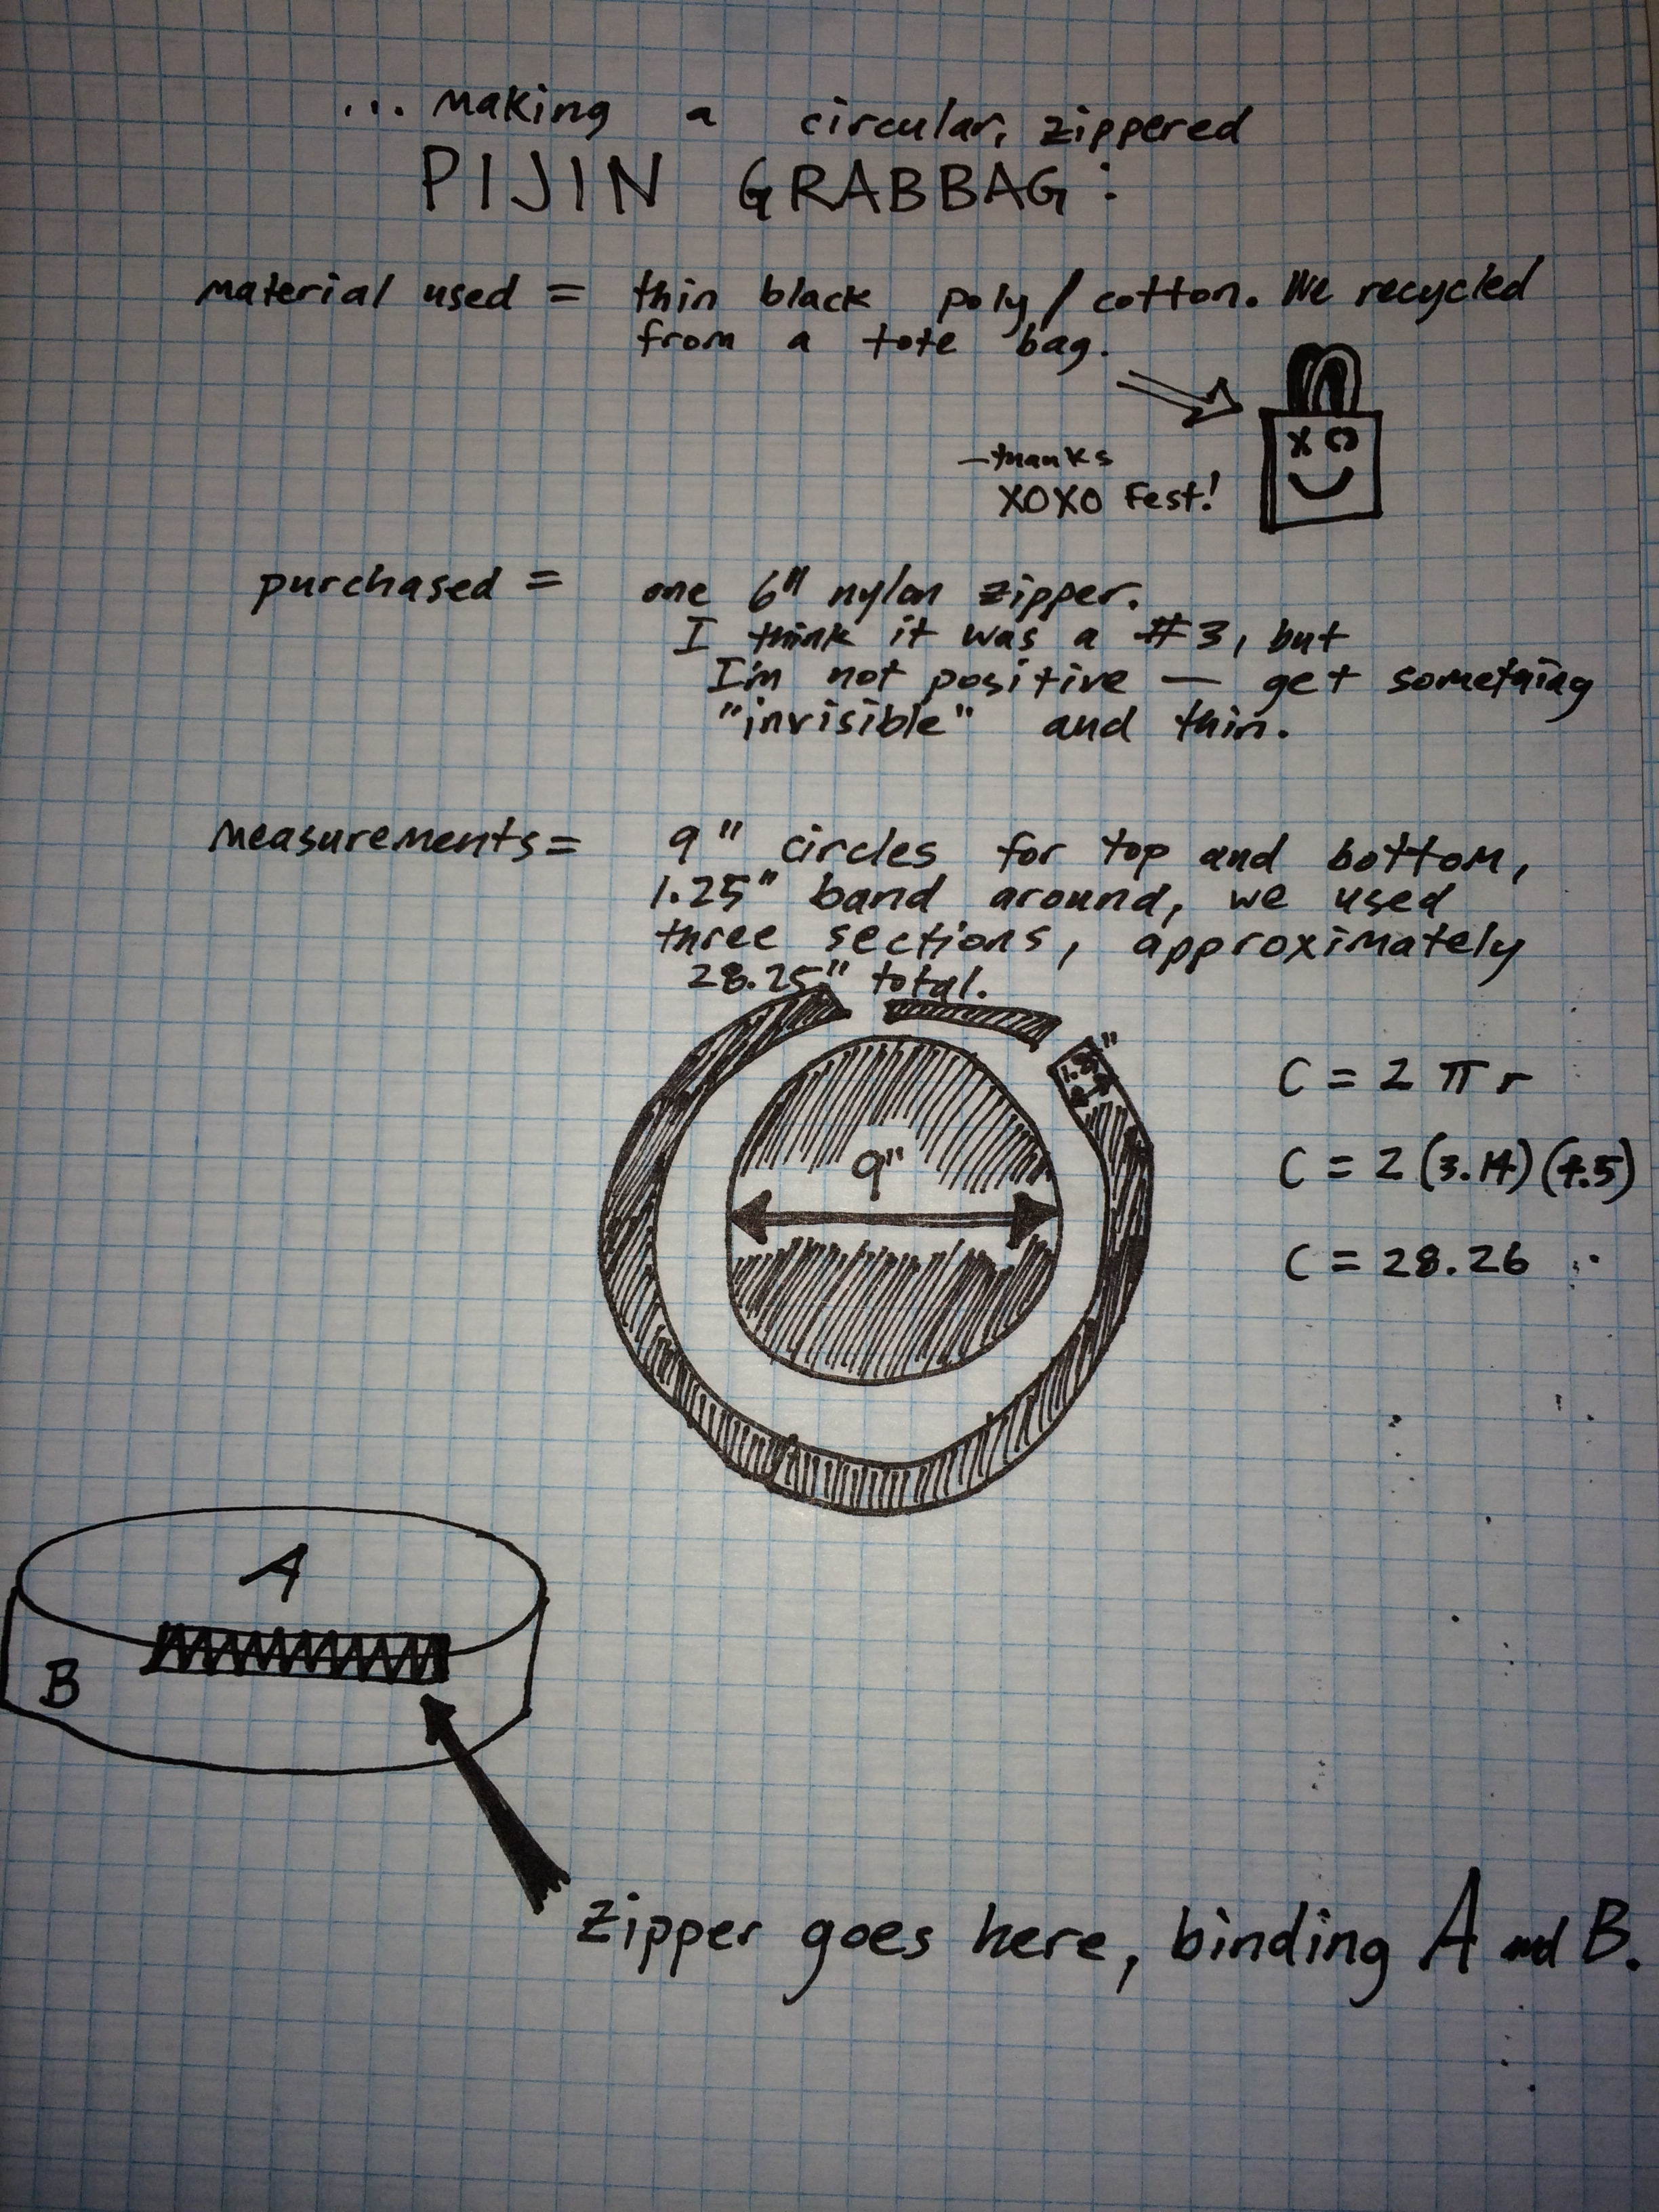 ... making a circular, zippered
PIJIN GRABBAG:
material used = thin black poly/cotton. We recycled
from a tote bag.
XO
- thanks
XOXO Fest!
purchased = one 6" nylon zipper.
I think it was a #3, but
I'm not positive — get something
"invisible" and thin.
measurements = 9" circles for top and bottom,
1.25" band around, we used
three sections, approximately
28.25" total.
9"
C = 2 π r
C = 2 (3.14) (4.5)
C = 28.26
A
B
zipper goes here, binding A and B.